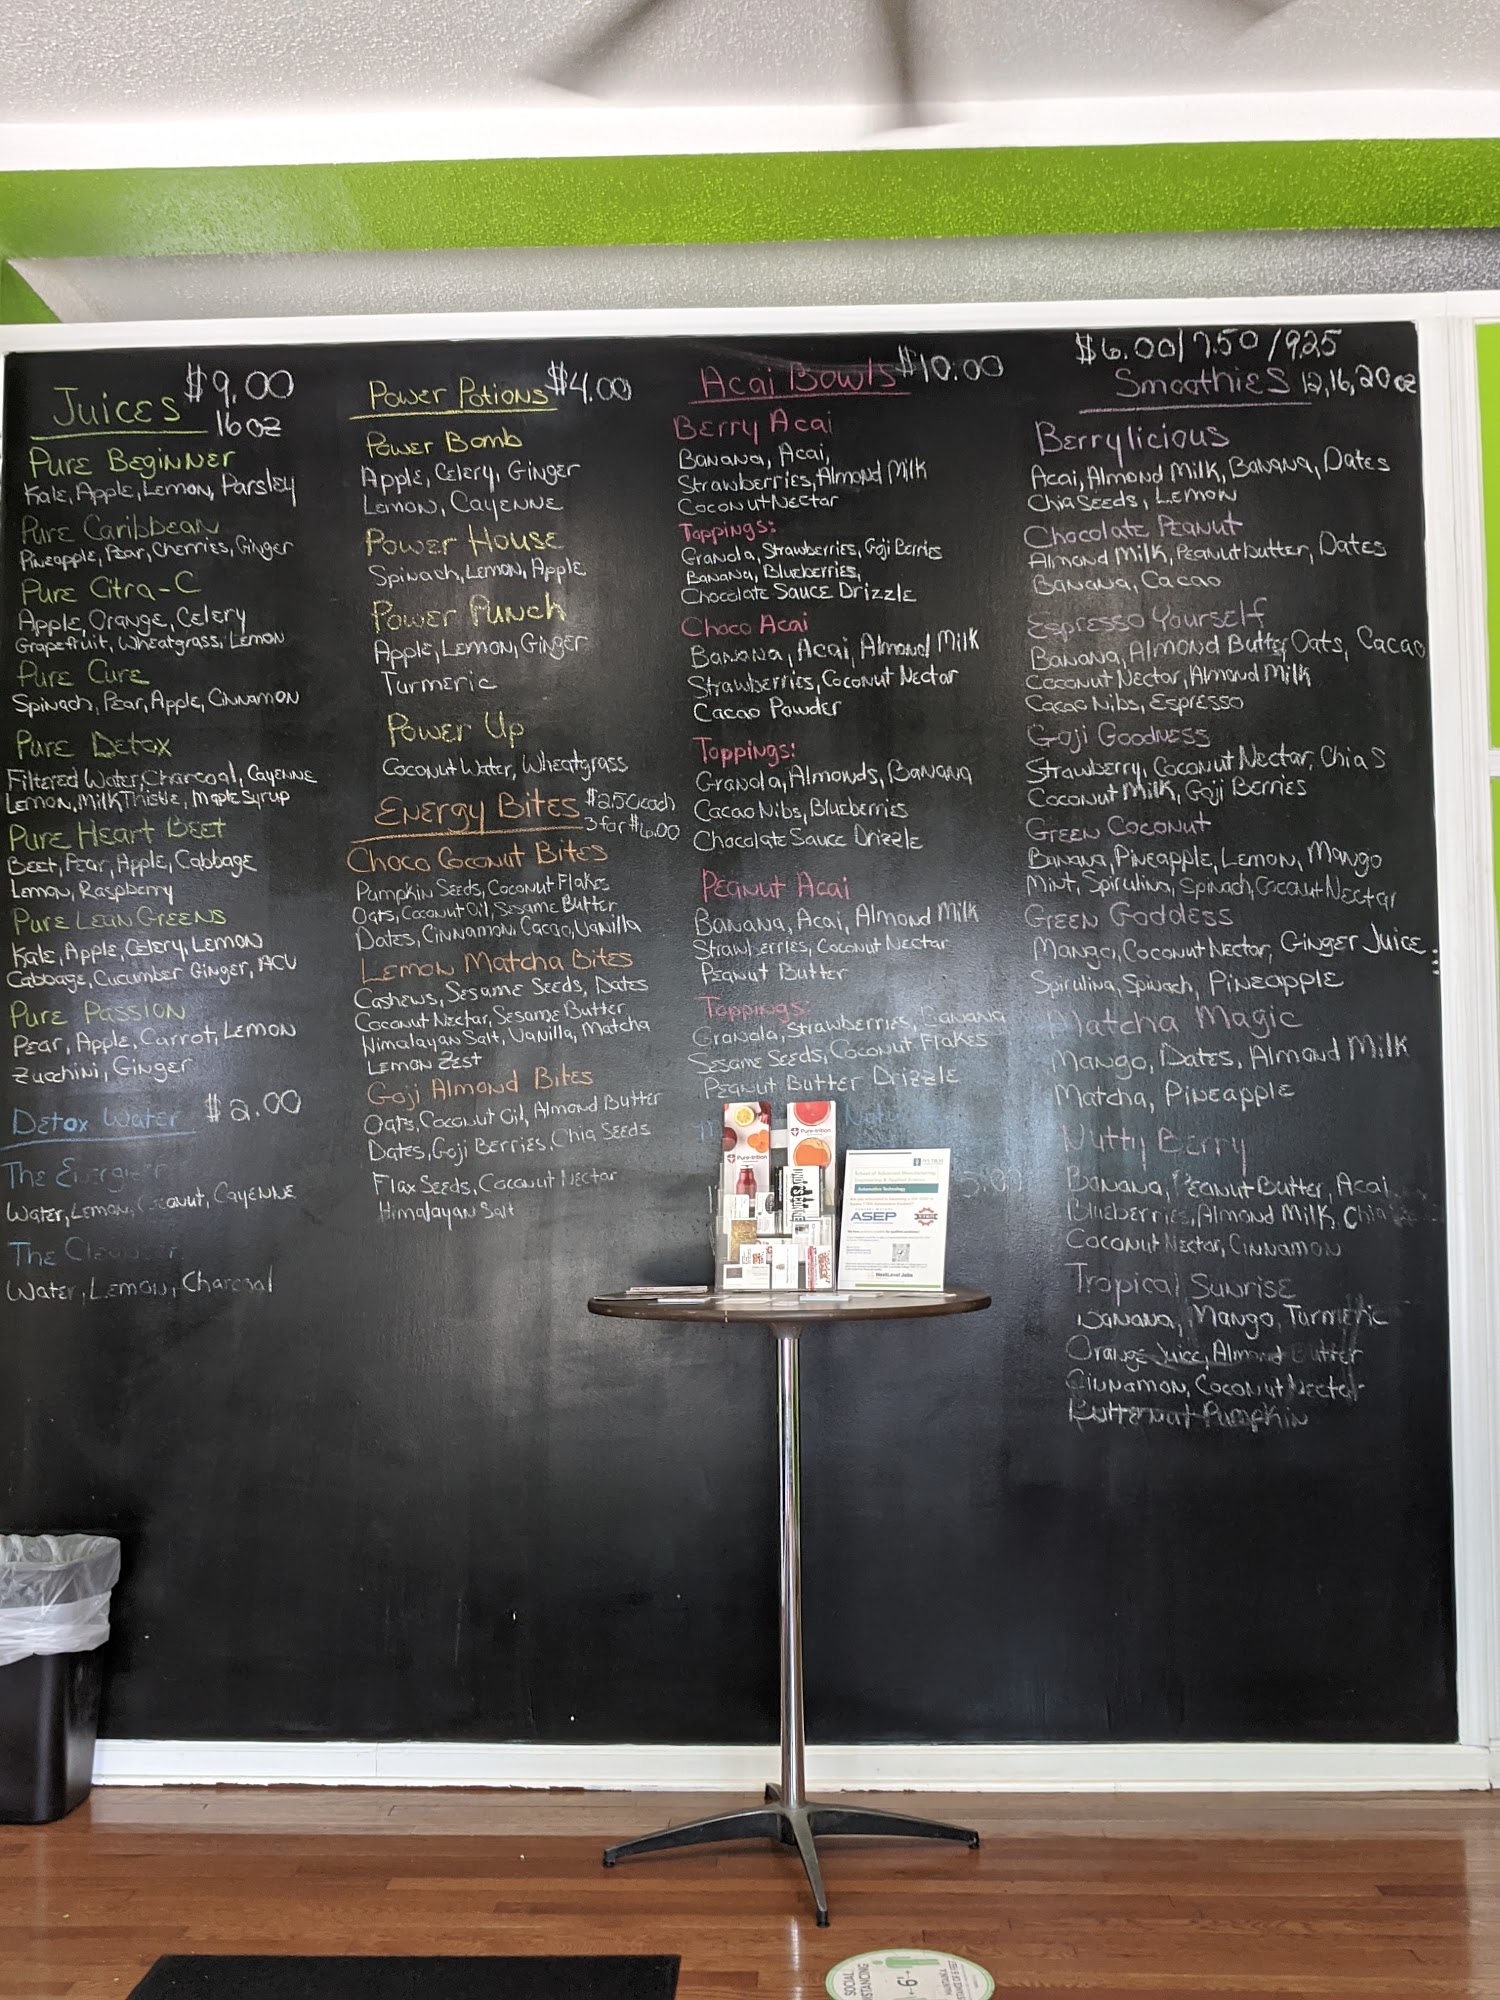 Juices $9.00
16 oz
Pure Beginner
Kale, Apple, Lemon, Parsley
Pure Caribbean
Pineapple, Pear, Cherries, Ginger
Pure Citra-C
Apple, Orange, Celery
Grapefruit, Wheatgrass, Lemon
Pure Cure
Spinach, Pear, Apple, Cinnamon
Pure Detox
Filtered Water, Charcoal, Cayenne
Lemon, Milk Thistle, Maple Syrup
Pure Heart Beet
Beet, Pear, Apple, Cabbage
Lemon, Raspberry
Pure Lean Greens
Kale, Apple, Celery, Lemon
Cabbage, Cucumber Ginger, ACV
Pure Passion
Pear, Apple, Carrot, Lemon
Zucchini, Ginger
Detox Water $2.00
The Energizer
Water, Lemon, Coconut, Cayenne
The Cleanser
Water, Lemon, Charcoal
Power Potions $4.00
Power Bomb
Apple, Celery, Ginger
Lemon, Cayenne
Power House
Spinach, Lemon, Apple
Power Punch
Apple, Lemon, Ginger
Turmeric
Power Up
Coconut Water, Wheatgrass
Energy Bites $2.50 each
3 for $6.00
Choco Coconut Bites
Pumpkin Seeds, Coconut Flakes
Oats, Coconut Oil, Sesame Butter
Dates, Cinnamon, Cacao, Vanilla
Lemon Matcha Bites
Cashews, Sesame Seeds, Dates
Coconut Nectar, Sesame Butter
Himalayan Salt, Vanilla, Matcha
Lemon Zest
Goji Almond Bites
Oats, Coconut Oil, Almond Butter
Dates, Goji Berries, Chia Seeds
Flax Seeds, Coconut Nectar
Himalayan Salt
Acai Bowls $10.00
Berry Acai
Banana, Acai,
Strawberries, Almond Milk
Coconut Nectar
Toppings:
Granola, Strawberries, Goji Berries
Banana, Blueberries,
Chocolate Sauce Drizzle
Choco Acai
Banana, Acai, Almond Milk
Strawberries, Coconut Nectar
Cacao Powder
Toppings:
Granola, Almonds, Banana
Cacao Nibs, Blueberries
Chocolate Sauce Drizzle
Peanut Acai
Banana, Acai, Almond Milk
Strawberries, Coconut Nectar
Peanut Butter
Toppings:
Granola, Strawberries, Banana
Sesame Seeds, Coconut Flakes
Peanut Butter Drizzle
Pure-trition
Pure-trition
Automotive Technology
ASEP
NextLevel Jobs
$6.00/7.50/9.25
Smoothies 12, 16, 20 oz
Berrylicious
Acai, Almond Milk, Banana, Dates
Chia Seeds, Lemon
Chocolate Peanut
Almond Milk, Peanutbutter, Dates
Banana, Cacao
Espresso Yourself
Banana, Almond Butter, Oats, Cacao
Coconut Nectar, Almond Milk
Cacao Nibs, Espresso
Goji Goodness
Strawberry, Coconut Nectar, Chia S
Coconut Milk, Goji Berries
Green Coconut
Banana, Pineapple, Lemon, Mango
Mint, Spirulina, Spinach, Coconut Nectar
Green Goddess
Mango, Coconut Nectar, Ginger Juice
Spirulina, Spinach, Pineapple
Matcha Magic
Mango, Dates, Almond Milk
Matcha, Pineapple
Nutty Berry
Banana, Peanut Butter, Acai
Blueberries, Almond Milk, Chia
Coconut Nectar, Cinnamon
Tropical Sunrise
Banana, Mango, Turmeric
Orange Juice, Almond Butter
Cinnamon, Coconut Nectar
Butternut Pumpkin
SOCIAL
6'